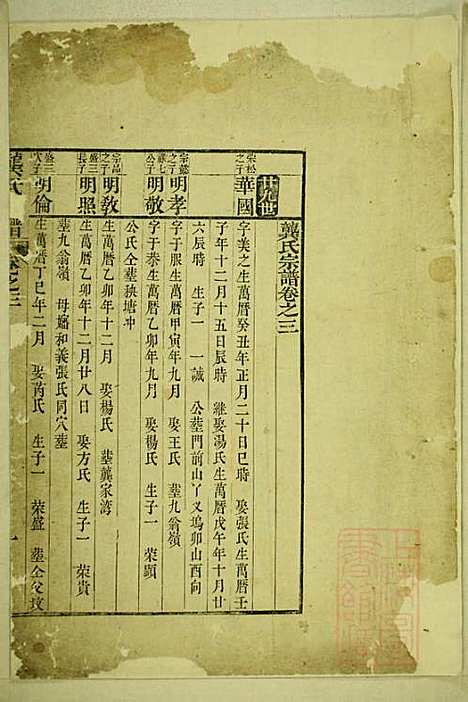 龔氏宗譜卷之三
廿九世
榮松之子 華國 字美之生萬曆癸丑年正月二十日巳時 娶張氏生萬曆壬
子年十二月十五日辰時 繼娶湯氏生萬曆戊午年十月廿
六辰時 生子一 一誠 公塟門前山丫叉塢卯山酉向
宗懿之子 明孝 字于服生萬曆甲寅年九月 娶王氏 塟九翁嶺
公子 明敬 字于泰生萬曆乙卯年九月 娶楊氏 生子一 榮顯
公氏仝塟秧塘冲
之子 明敎 生萬曆乙卯年十二月 娶楊氏 塟龔家湾
盛三長子 明照 生萬曆乙卯年十二月廿八日 娶方氏 生子一 榮貴
塟九翁嶺 母繼和義張氏同穴塟
盛三次子 明倫 生萬曆丁巳年二月 娶芮氏 生子一 榮盛 塟仝父坟
龔氏 譜 卷之三 一